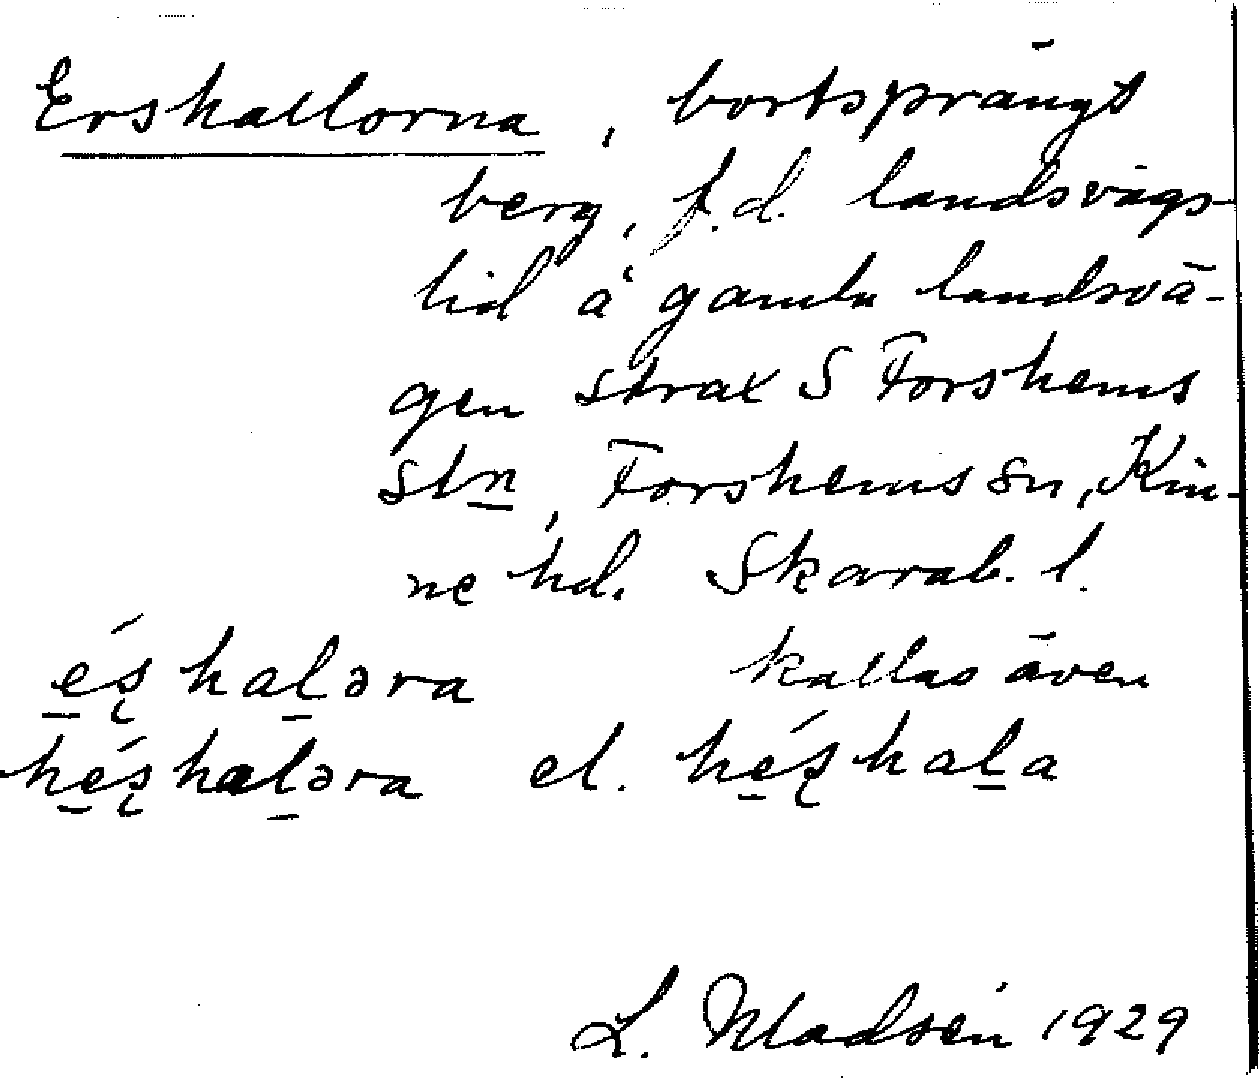 Ershallorna, bortsprängt
berg, f.d. landsvägs-
lid å gamla landsvä-
gen strax S Forshems
stn, Forshems sn, Kin-
ne hd. Skarab. l.
e̲ʂ́ hal̲əra kallas även
he̲ʂ́hal̲əra el. he̲ʂ́hal̲a
L. Madsén 1929